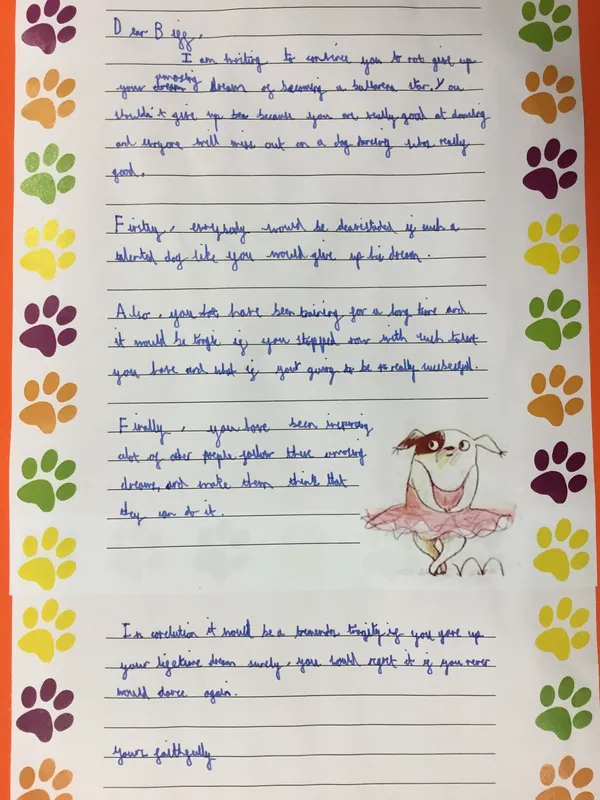 Dear Biff,
I am writing to convince you to not give up
your dream amazing dream of becoming a ballarena star. You
shouldn't give up bea because you are really good at dancing
and everyone will miss out on a dog dancing who's really
good.
Firstly, everybody would be devistated if such a
talented dog like you would give up his dream.
Also, you have been training for a long time and
it would be tragic if you stopped now with such talent
you have and what if your going to be so really successful.
Finally, you have been inspiring
alot of other people follow there amazing
dreams, and make them think that
they can do it.
In conclution it would be a tremendos tragity if you gave up
your lifetime dream surely, you would regret it if you never
would dance again.
yours faithfully